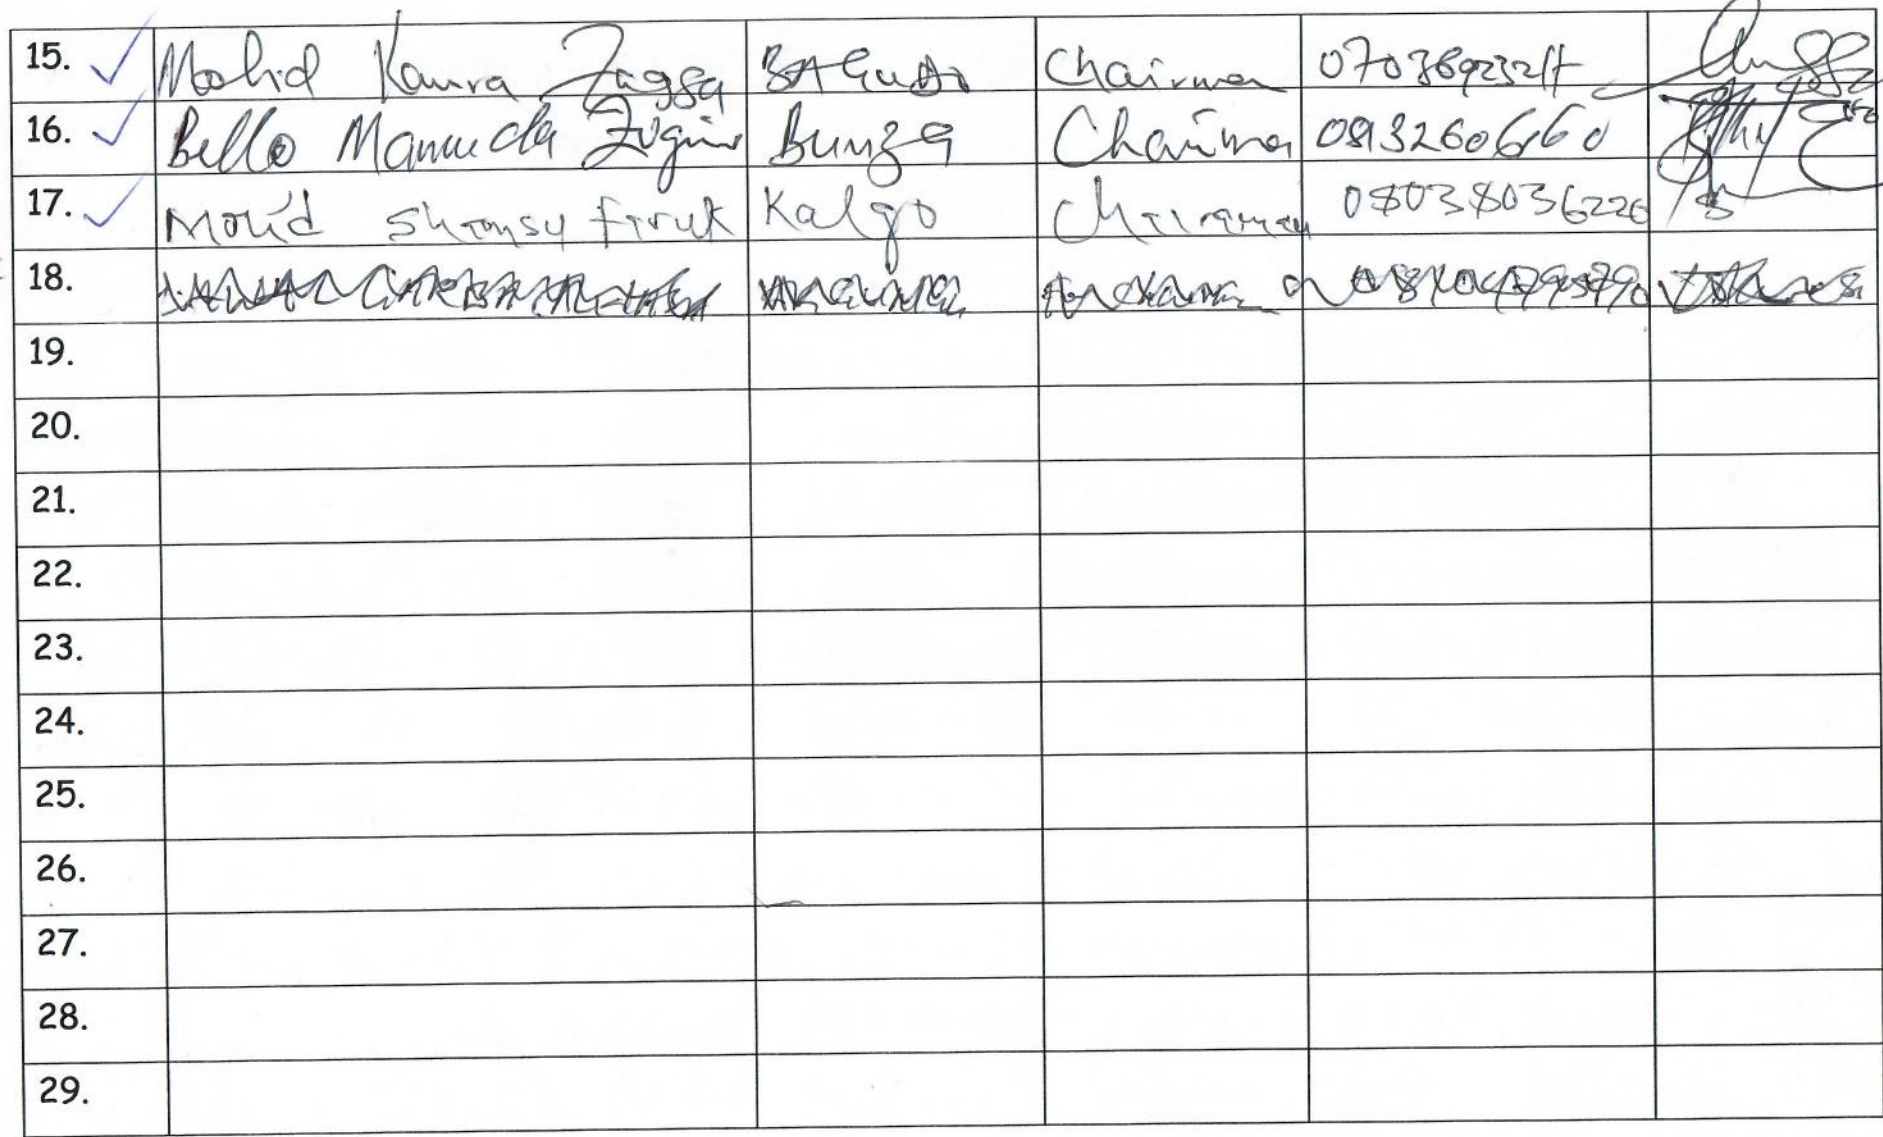 15. Mohd Kaura Zagga BAGUDO Chairman
16. Bello Mamuda Bunza Chairman 08132606660
17. Mohd Shamsu faruk Kalgo Chairaman 08038036226
18.
19.
20.
21.
22.
23.
24.
25.
26.
27.
28.
29.